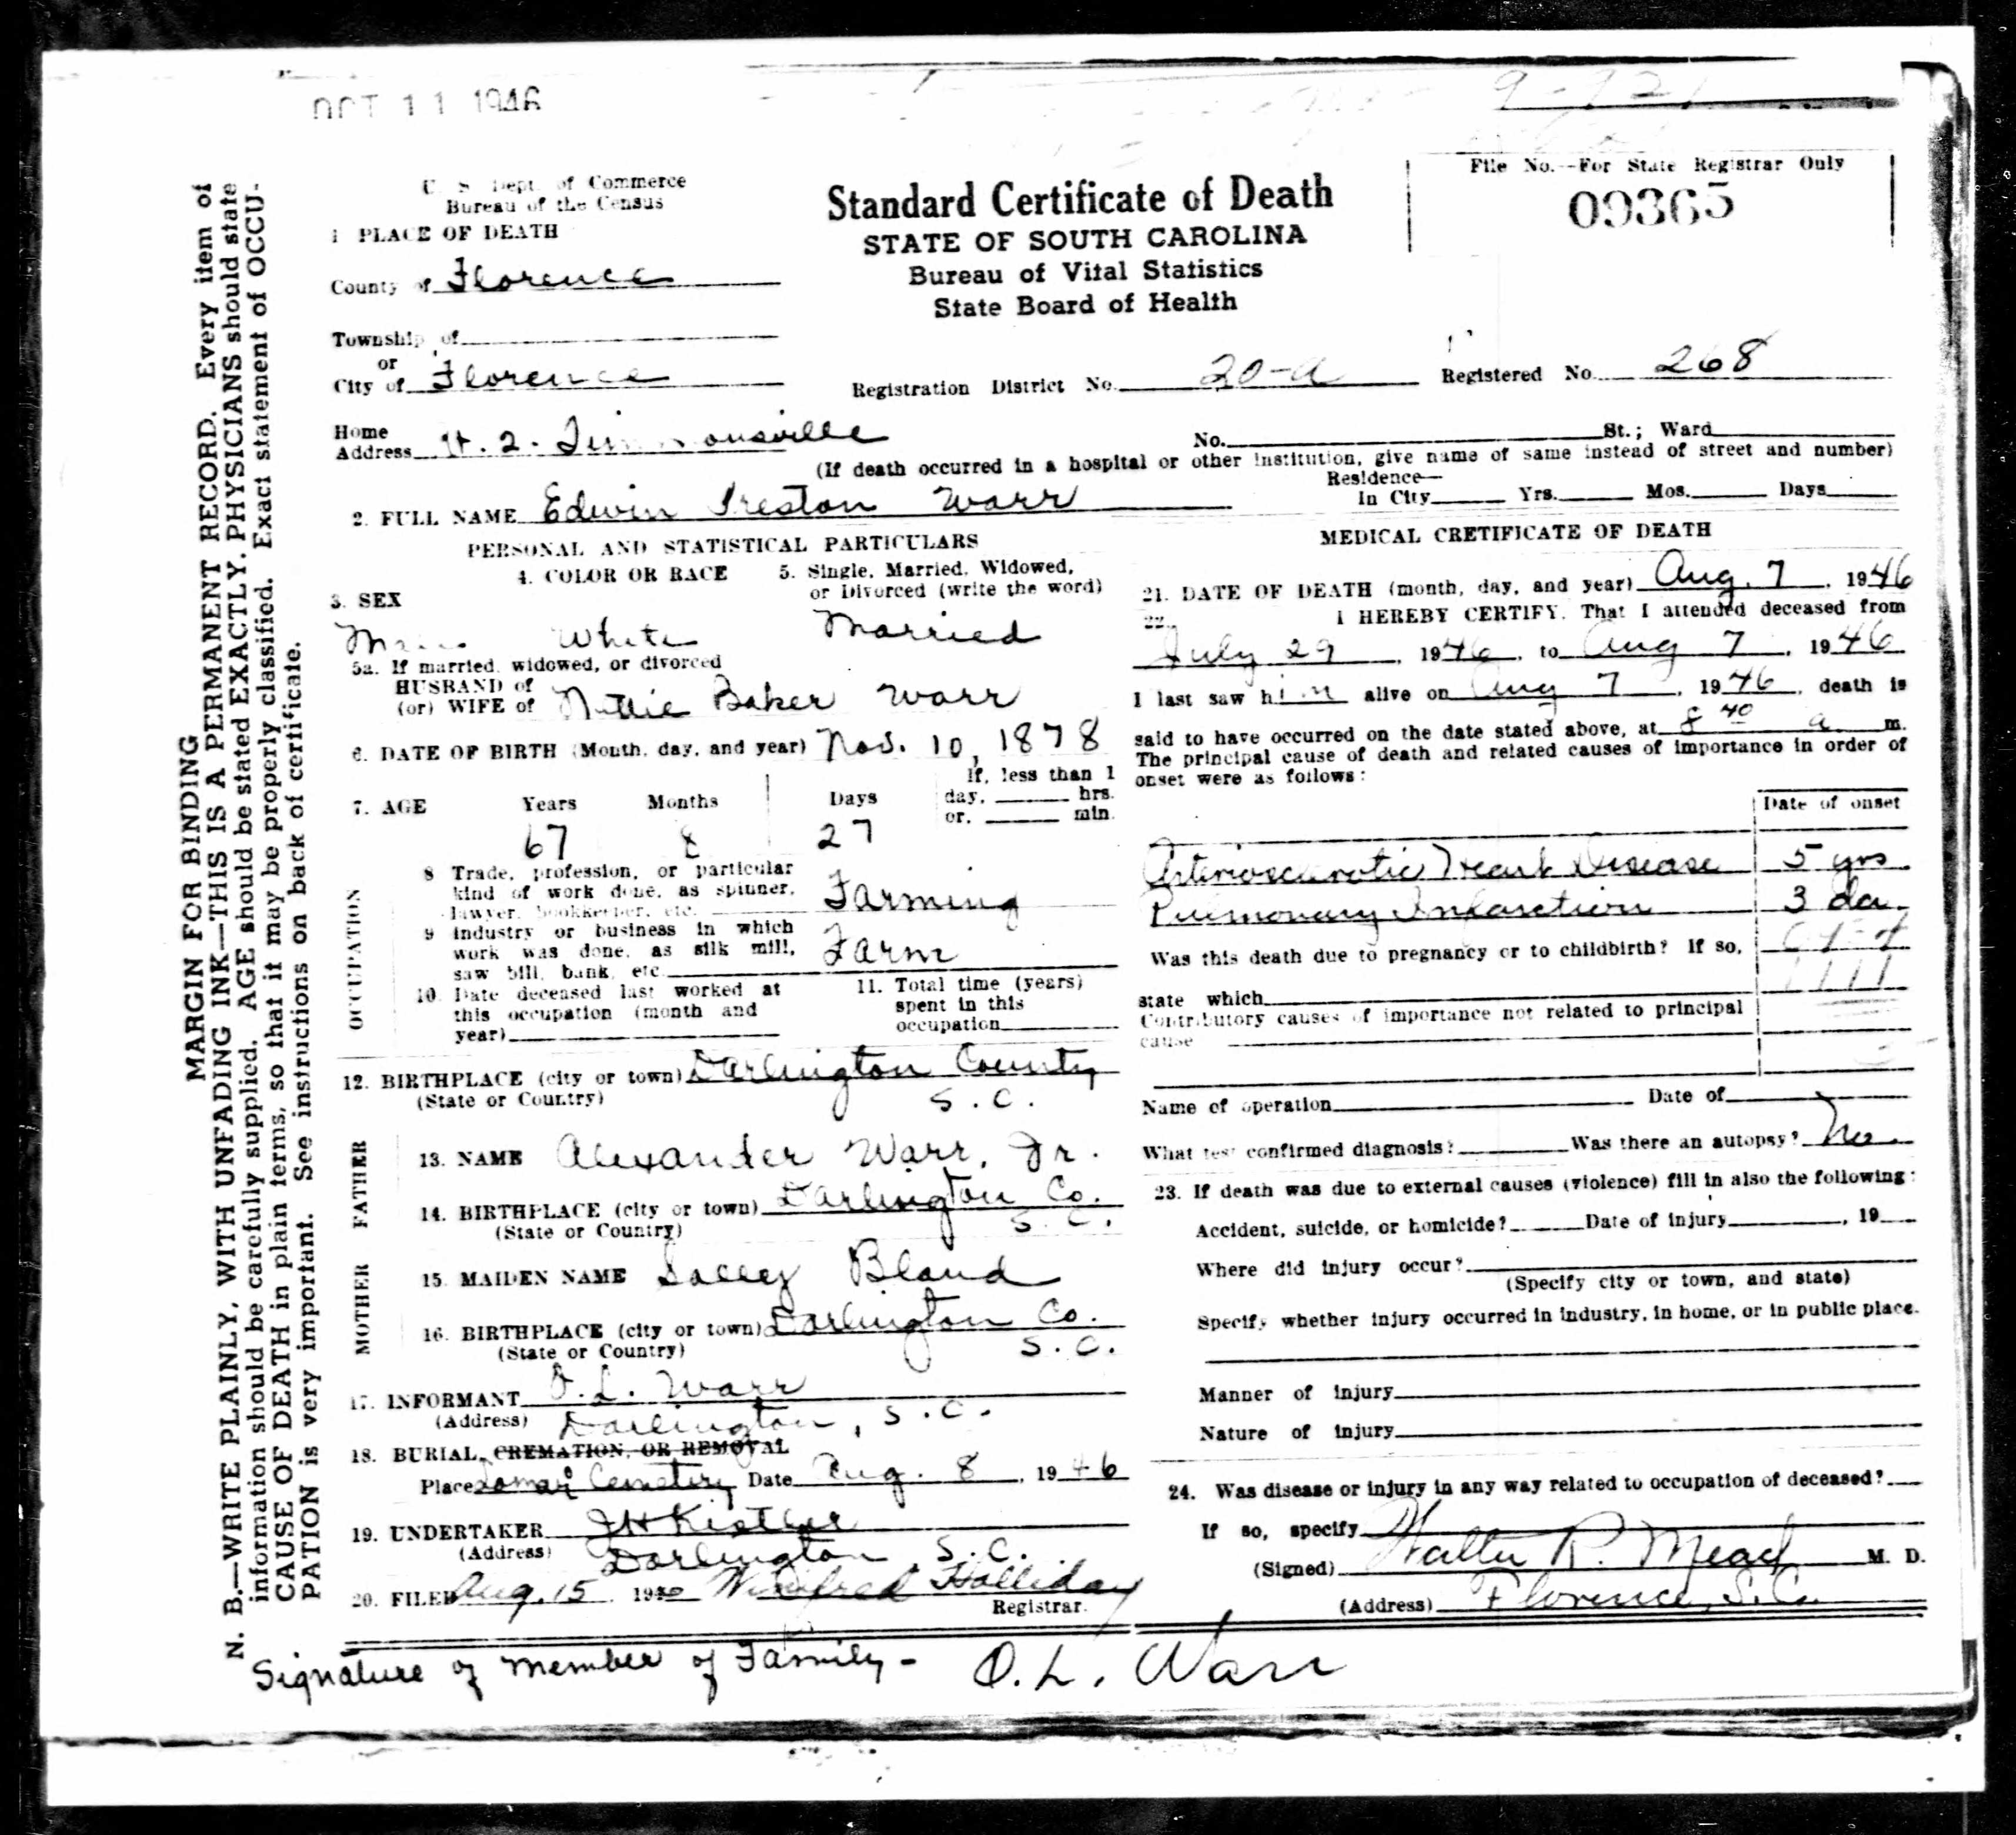 OCT 11 1946
U. S. Dept. of Commerce
Bureau of the Census
Standard Certificate of Death
STATE OF SOUTH CAROLINA
Bureau of Vital Statistics
State Board of Health
File No.--For State Registrar Only
09365
1 PLACE OF DEATH
County of Florence
Township of
or
City of Florence
Registration District No. 20-A Registered No. 268
Home
Address 2. Timmonsville
No. St.; Ward
(If death occurred in a hospital or other Institution, give name of same instead of street and number)
Residence—
In City Yrs. Mos. Days
2. FULL NAME Edwin Preston Warr
PERSONAL AND STATISTICAL PARTICULARS
3. SEX
4. COLOR OR RACE
5. Single, Married, Widowed,
or Divorced (write the word)
Male White Married
5a. If married, widowed, or divorced
HUSBAND of
(or) WIFE of Nettie Baker Warr
6. DATE OF BIRTH (Month, day, and year) Nov. 10, 1878
7. AGE Years Months Days
If, less than 1
day, hrs.
or, min.
67 8 27
OCCUPATION
8 Trade, profession, or particular
kind of work done, as spinner,
lawyer, bookkeeper, etc. Farming
9 industry or business in which
work was done, as silk mill,
saw bill, bank, etc. Farm
10. Date deceased last worked at
this occupation (month and
year)
11. Total time (years)
spent in this
occupation
12. BIRTHPLACE (city or town) Darlington County
(State or Country) S. C.
FATHER
13. NAME Alexander Warr, Jr.
14. BIRTHPLACE (city or town) Darlington Co.
(State or Country) S. C.
MOTHER
15. MAIDEN NAME Salley Bland
16. BIRTHPLACE (city or town) Darlington Co.
(State or Country) S. C.
17. INFORMANT O. L. Warr
(Address) Darlington, S. C.
18. BURIAL, CREMATION, OR REMOVAL
Place Lamar Cemetery Date Aug. 8, 1946
19. UNDERTAKER J H Kistler
(Address) Darlington, S. C.
20. FILED Aug. 15, 1946 Winifred Holliday
Registrar.
MEDICAL CRETIFICATE OF DEATH
21. DATE OF DEATH (month, day, and year) Aug. 7, 1946
22. I HEREBY CERTIFY. That I attended deceased from
July 29, 1946, to Aug 7, 1946
I last saw him alive on Aug 7, 1946, death is
said to have occurred on the date stated above, at 8 40 a m.
The principal cause of death and related causes of importance in order of
onset were as follows:
Date of onset
Arteriosclerotic Heart Disease 5 yrs
Pulmonary Infarction 3 da.
Was this death due to pregnancy or to childbirth? If so,
state which
Contributory causes of importance not related to principal
cause
Name of operation Date of
What test confirmed diagnosis? Was there an autopsy? No
23. If death was due to external causes (violence) fill in also the following:
Accident, suicide, or homicide? Date of injury , 19
Where did injury occur?
(Specify city or town, and state)
Specify whether injury occurred in industry, in home, or in public place.
Manner of injury
Nature of injury
24. Was disease or injury in any way related to occupation of deceased?
If so, specify
(Signed) Walter R. Mead M. D.
(Address) Florence, S.C.
Signature of member of Family - O. L. Warr
MARGIN FOR BINDING
N. B.—WRITE PLAINLY, WITH UNFADING INK—THIS IS A PERMANENT RECORD. Every item of
information should be carefully supplied. AGE should be stated EXACTLY. PHYSICIANS should state
CAUSE OF DEATH in plain terms, so that it may be properly classified. Exact statement of OCCU-
PATION is very important. See instructions on back of certificate.